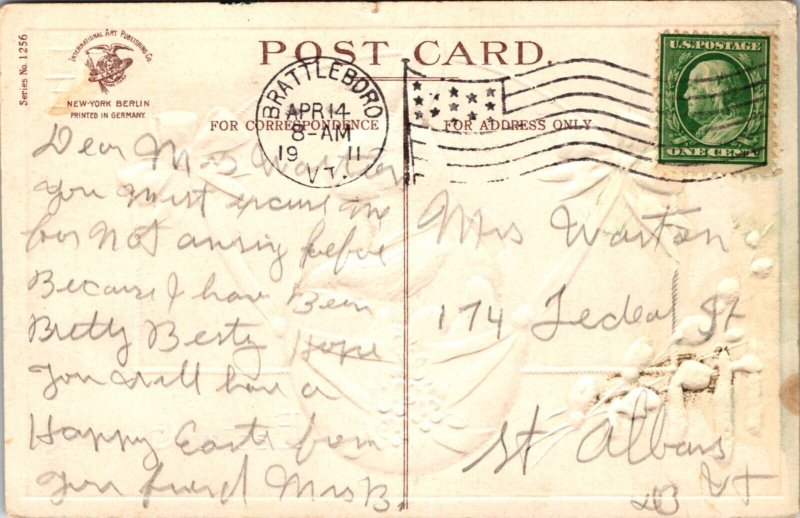 Series No. 1256
INTERNATIONAL ART PUBLISHING Co.
NEW-YORK BERLIN
PRINTED IN GERMANY.
POST CARD.
FOR CORRESPONDENCE
FOR ADDRESS ONLY
BRATTLEBORO
APR 14
8-AM
19 11
VT.
U.S. POSTAGE
ONE CENT
Dear Mrs
You must excuse me
for Not before
Because I have Been
Pretty Hope
You will have a
Happy Easte from
your friend Mrs B.
Mrs Warton
174 Federal St
St Albans
Vt